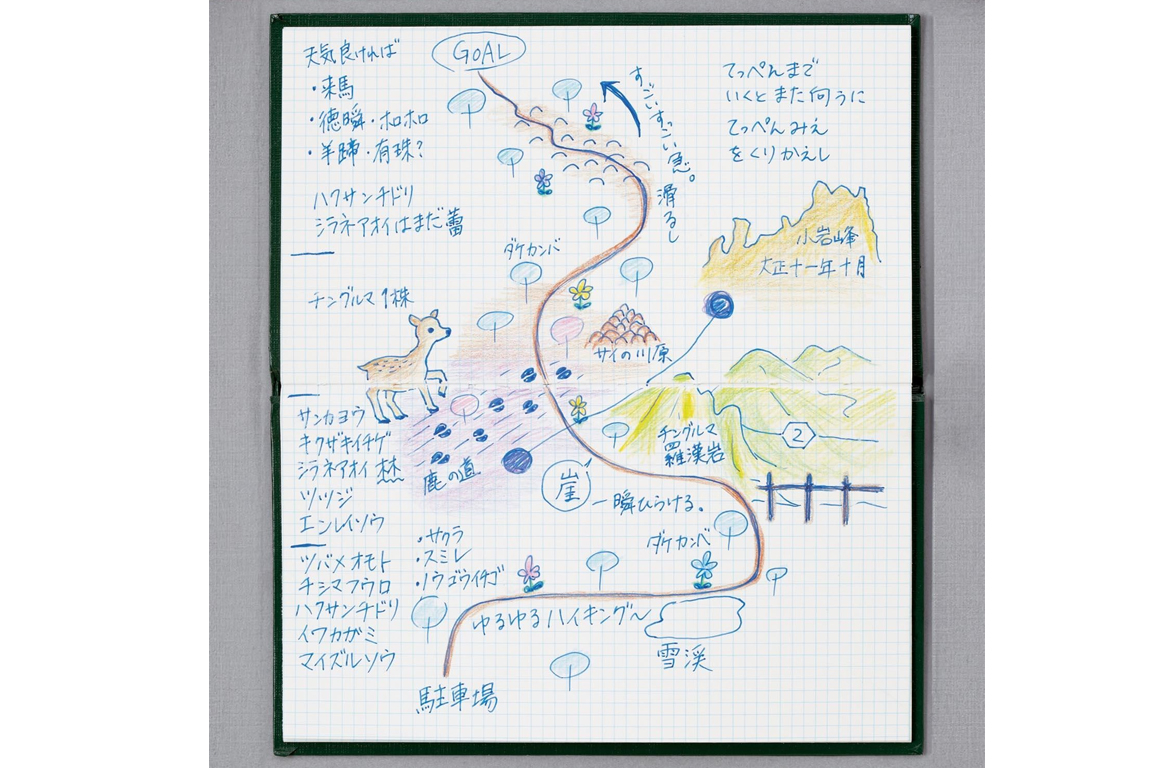 天気良ければ
・来馬
・徳瞬・ホロホロ
・羊蹄・有珠?
ハクサンチドリ
シラネアオイはまだ蕾
チングルマ1株
サンカヨウ
キクザキイチゲ
シラネアオイ
ツツジ
エンレイソウ
ツバメオモト
チシマフウロ
ハクサンチドリ
イワカガミ
マイズルソウ
・サクラ
・スミレ
・ノウゴウイチゴ
GOAL
すごいすっごい急。
滑るし
てっぺんまで
いくとまた向うに
てっぺんみえ
をくりかえし
小岩峰
大正十一年十月
ダケカンバ
サイの川原
チングルマ
羅漢岩
2
鹿の道
崖
一瞬ひらける。
ダケカンバ
ゆるゆるハイキング〜
雪渓
駐車場